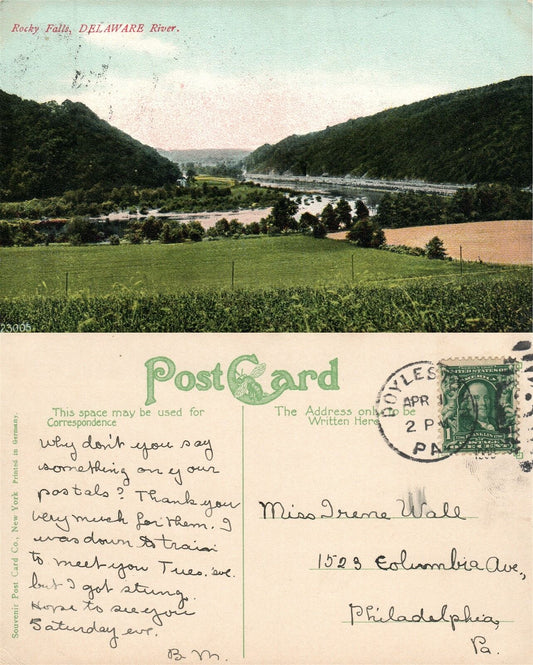 Rocky Falls, DELAWARE River.
23005
Post Card
This space may be used for
Correspondence
The Address only to be
Written Here
DOYLES
APR
2 P
PA
Souvenir Post Card Co., New York Printed in Germany.
Why don't you say
something on your
postals? Thank you
very much for them. I
was down to train
to meet you Tues. eve.
but I got stung.
Hope to see you
Saturday eve.
B. M.
Miss Irene Wall
1523 Columbia Ave,
Philadelphia,
Pa.